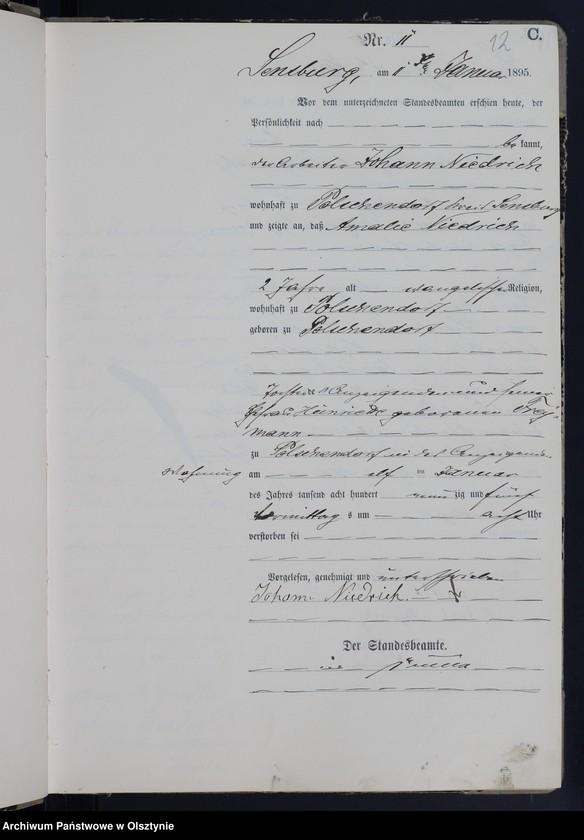 12 C.
Nr. 11
Sensburg, am Januar 1895.
Vor dem unterzeichneten Standesbeamten erschien heute, der
Persönlichkeit nach
be kannt,
der Arbeiter Johann Niedrich
wohnhaft zu Polschendorf Kreis Sensburg
und zeigte an, daß Amalie Niedrich
2 Jahre alt evangelischer Religion,
wohnhaft zu Polschendorf
geboren zu Polschendorf
Tochter des Anzeigenden und seiner
Ehefrau geborenen
mann
zu Polschendorf in des Anzeigenden
Wohnung am elf Januar
des Jahres tausend acht hundert neun zig und fünf
Vormittag s um acht Uhr
verstorben sei
Vorgelesen, genehmigt und unterschrieben
Johann Niedrich.
Der Standesbeamte.
Archiwum Państwowe w Olsztynie